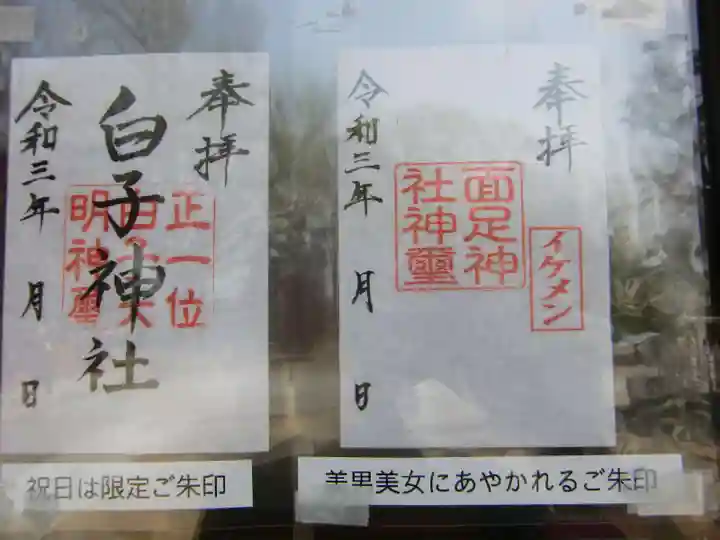 奉拝
白子神社
正一位
白子大
明神璽
令和三年 月 日
祝日は限定ご朱印
奉拝
面足神
社神璽
イケメン
令和三年 月 日
美男美女にあやかれるご朱印